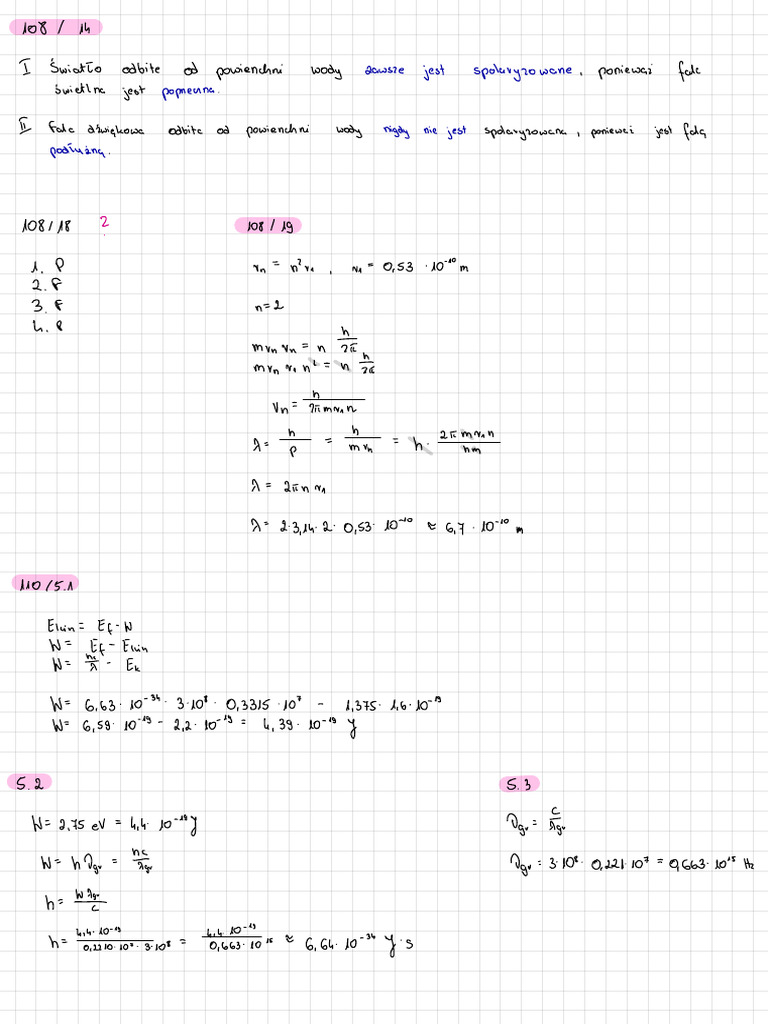 108 / 14
I Światło odbite od powierzchni wody zawsze jest spolaryzowane, ponieważ fala
świetlna jest poprzeczna.
II Fala dźwiękowa odbita od powierzchni wody nigdy nie jest spolaryzowana, ponieważ jest falą
podłużną.
108 / 18 ?
1. P
2. F
3. F
4. P
108 / 19
rₙ = n² r₁ , r₁ = 0,53 · 10⁻¹⁰ m
n = 2
m vₙ rₙ = n h/2π
m vₙ r₁ n² = n h/2π
vₙ = h/2π m r₁ n
λ = h/p = h/m vₙ = h · 2π m r₁ n/hm
λ = 2π n r₁
λ = 2 · 3,14 · 2 · 0,53 · 10⁻¹⁰ ≈ 6,7 · 10⁻¹⁰ m
110 / 5.1
Ekin = Ef - W
W = Ef - Ekin
W = hc/λ - Ek
W = 6,63 · 10⁻³⁴ · 3 · 10⁸ · 0,3315 · 10⁷ - 1,375 · 1,6 · 10⁻¹⁹
W = 6,59 · 10⁻¹⁹ - 2,2 · 10⁻¹⁹ = 4,39 · 10⁻¹⁹ J
5.2
W = 2,75 eV = 4,4 · 10⁻¹⁹ J
W = h νgr = hc/λgr
h = W λgr/c
h = 4,4 · 10⁻¹⁹/0,2210 · 10⁷ · 3 · 10⁸ = 4,4 · 10⁻¹⁹/0,663 · 10¹⁵ ≈ 6,64 · 10⁻³⁴ J · s
5.3
νgr = c/λgr
νgr = 3 · 10⁸ · 0,221 · 10⁷ = 0,663 · 10¹⁵ Hz